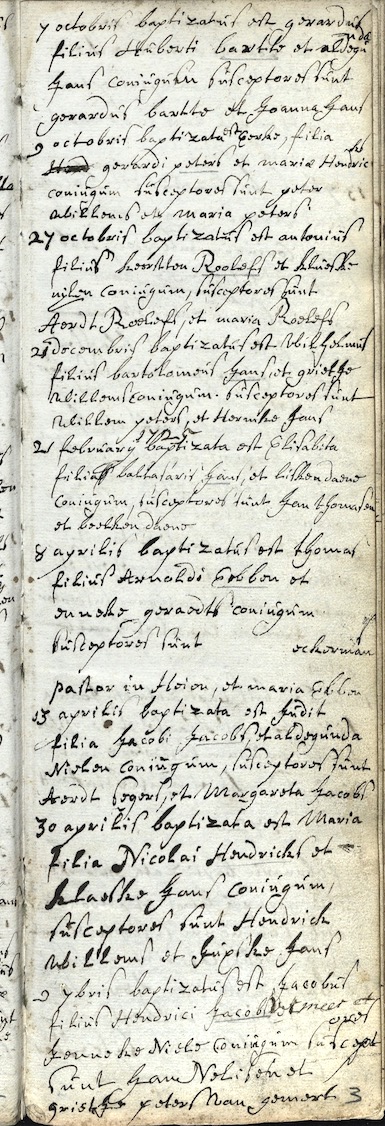 7 octobris baptizatus est gerardus
filius Huberti bartte et aldegundæ
Jans coniugum susceptores sunt
gerardus bartte et Joanna Jans
9 octobris baptizata est Eerke, filia
gerardi peters et mariæ Hendric
coniugum susceptores sunt peter
willems et maria peters
27 octobris baptizatus est antonius
filius kerstten Roeleefs et
nijlen coniugum, susceptores sunt
Aerdt Roeleefs, et maria Roelefs
21 decembris baptizatus est wilhelmus
filius bartolomeus Jans, et grietje
willems coniugum. susceptores sunt
willem peters, et Hermke Jans
21 february baptizata est Elisabeta
filia baltasaris hans, et lisken daene
coniugum, susceptores sunt Jan thomassen
et beelken daene
8 aprilis baptizatus est thomas
filius Arnoldi Ebben et
enneke geraedts coniugum
susceptores sunt eckerman
pastor in Heien, et maria Ebben
13 aprilis baptizata est Judit
filia Jacobi Jacobs, et aldegunda
Nielen coniugum, susceptores sunt
Aerdt Segers, et Margareta Jacobs
30 aprilis baptizata est Maria
filia Nicolai Hendricks et
klaeske Jans coniugum,
susceptores sunt Hendrick
willems et Jupske Jans
9 ybris baptizatus est Jacobus
filius Hendrici Jacobs et
Jenneke Niele coniugum suscept
ores
sunt Jan Nelissen et
grietje peters van gemert 3